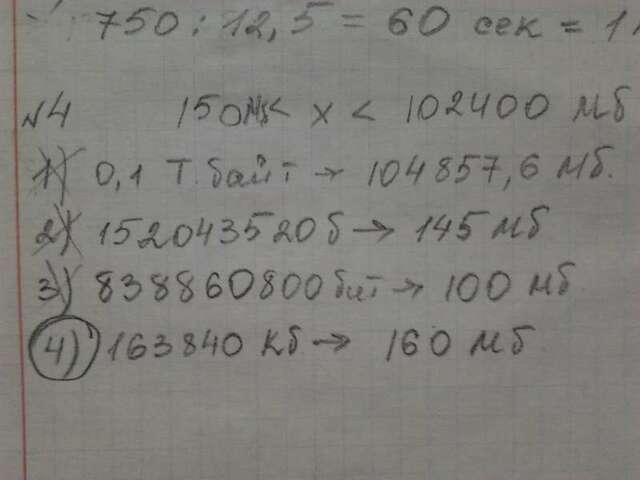 750 : 12,5 = 60 сек = 1
№4 150Мб < х < 102400 Мб
1) 0,1 Т.байт → 104857,6 Мб.
2) 152043520 б → 145 Мб
3) 838860800 бит → 100 Мб
4) 163840 Кб → 160 Мб